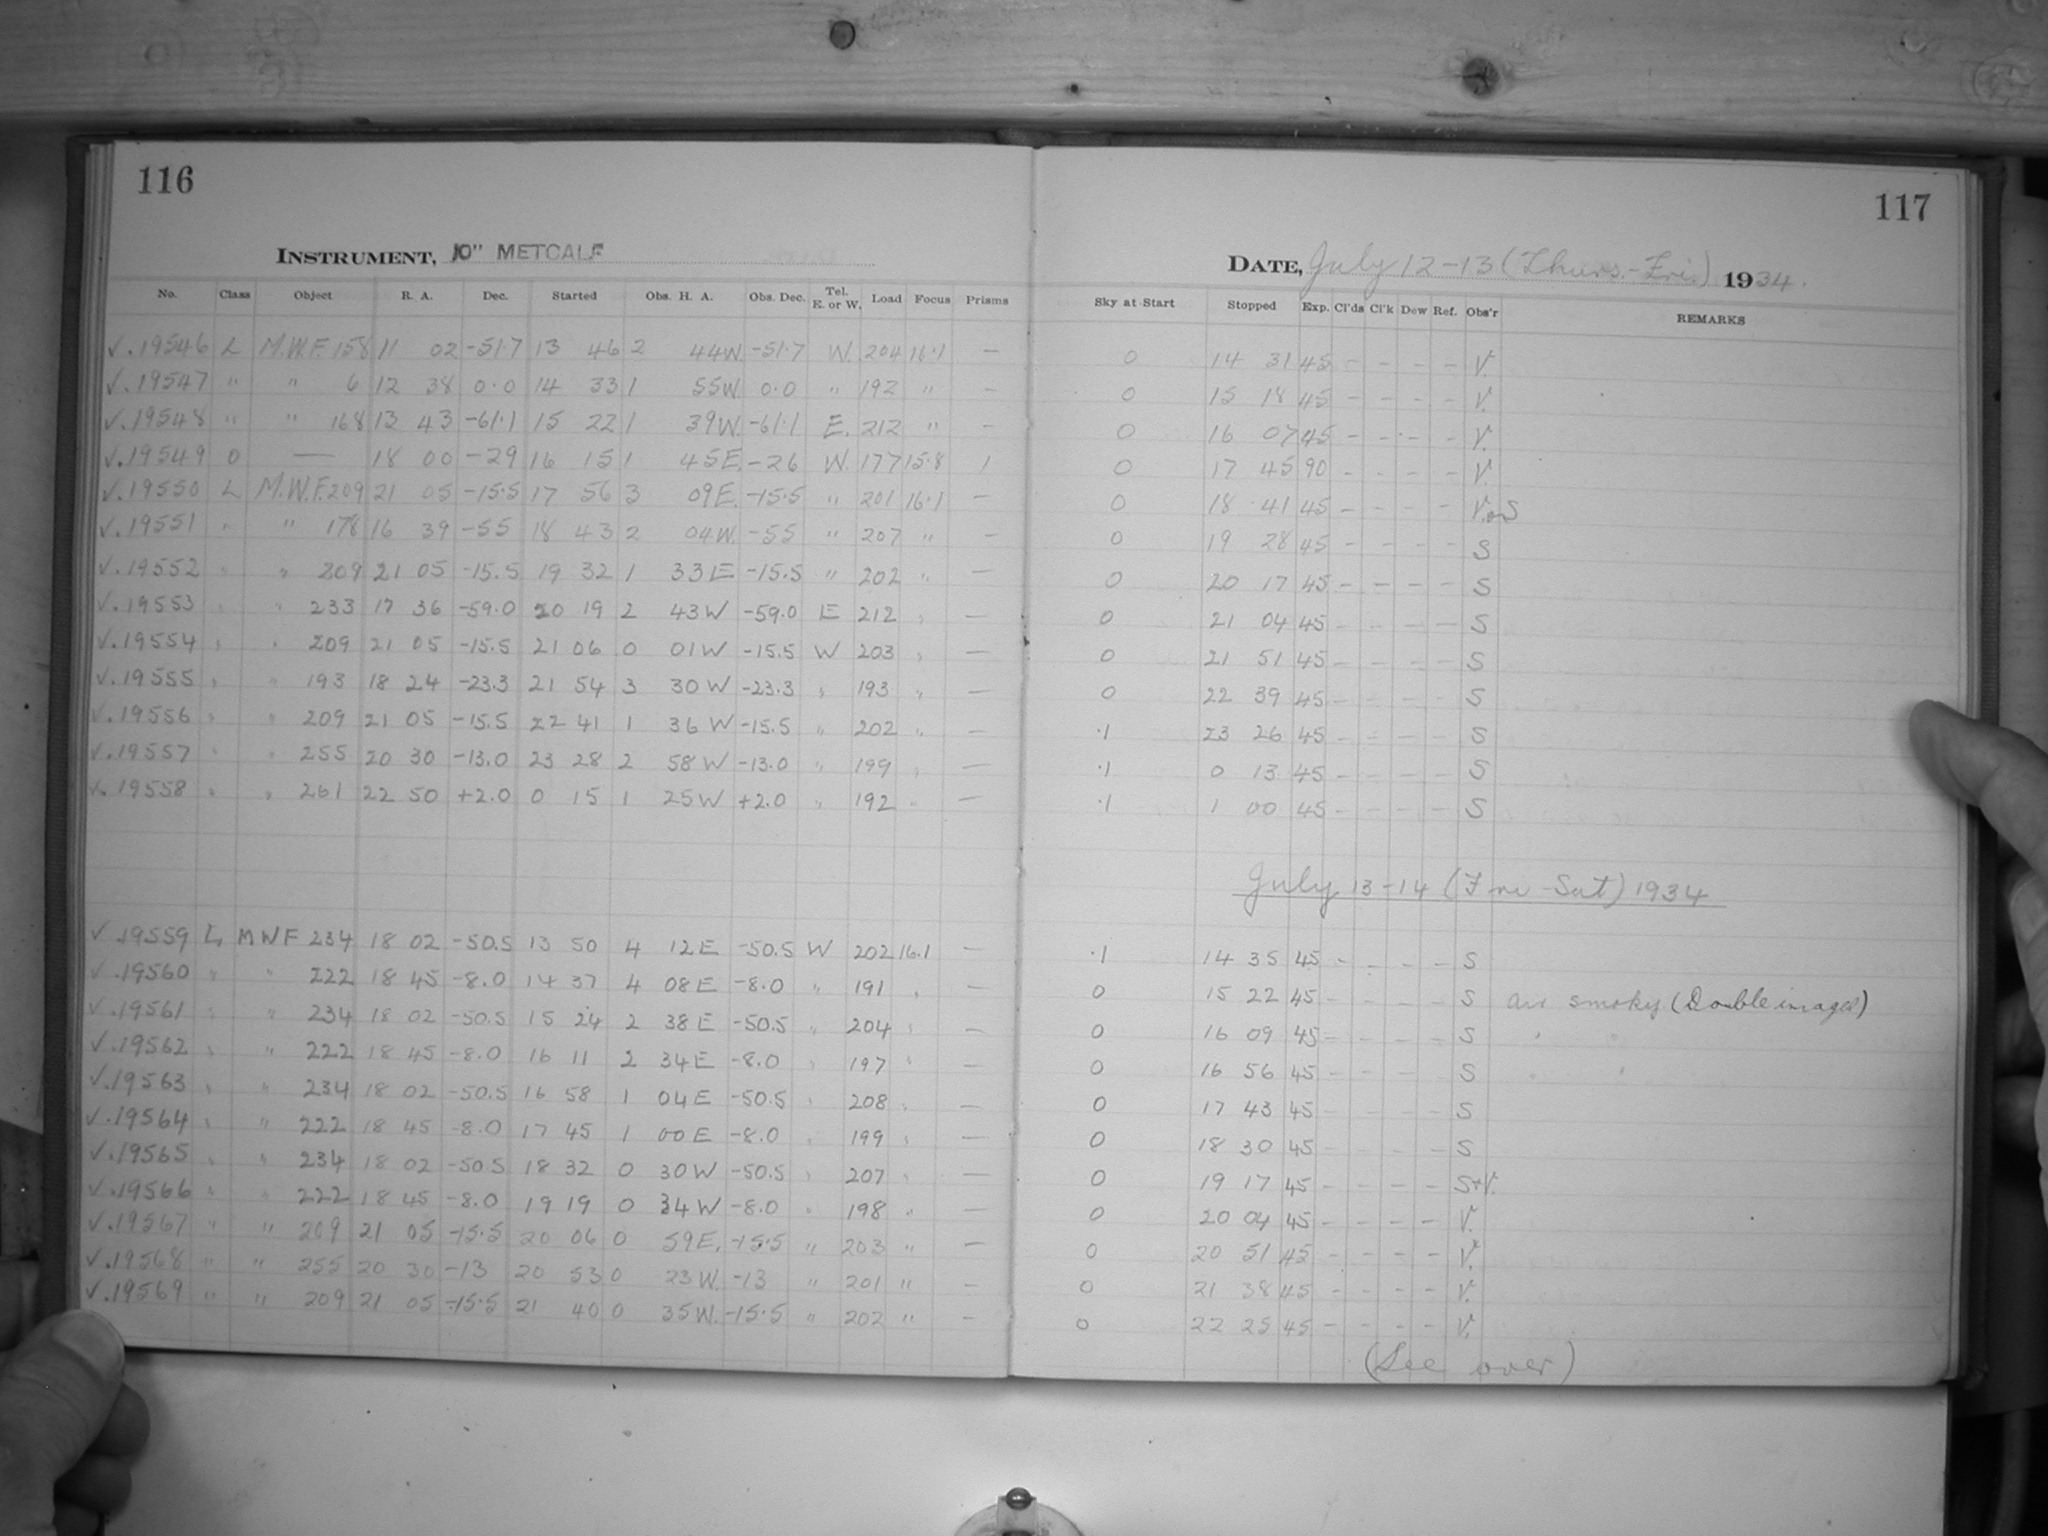 116
117
INSTRUMENT, 10" METCALF
DATE, July 12-13 (Thurs.-Fri.) 1934.
No. Class Object R. A. Dec. Started Obs. H. A. Obs. Dec. Tel. E. or W. Load Focus Prisms Sky at Start Stopped Exp. Cl'ds Cl'k Dew Ref. Obs'r REMARKS
√.19546 L M.W.F. 158 11 02 -51.7 13 46 2 44W. -51.7 W. 204 16.1 — 0 14 31 45 - - - - V.
√.19547 " " 6 12 38 0.0 14 33 1 55W. 0.0 " 192 " - 0 15 18 45 - - - - V.
√.19548 " " 168 13 43 -61.1 15 22 1 39W. -61.1 E. 212 " - 0 16 07 45 - - - - V.
√.19549 O — 18 00 -29 16 15 1 45E. -26 W. 177 15.8 1 0 17 45 90 - - - - V.
√.19550 L M.W.F. 209 21 05 -15.5 17 56 3 09E. -15.5 " 201 16.1 — 0 18 41 45 - - - - V. S
√.19551 " " 178 16 39 -55 18 43 2 04W. -55 " 207 " — 0 19 28 45 - - - - S
√.19552 " " 209 21 05 -15.5 19 32 1 33E -15.5 " 202 " — 0 20 17 45 - - - - S
√.19553 " " 233 17 36 -59.0 20 19 2 43W -59.0 E 212 " — 0 21 04 45 - - - - S
√.19554 " " 209 21 05 -15.5 21 06 0 01W -15.5 W 203 " — 0 21 51 45 - - - - S
√.19555 " " 193 18 24 -23.3 21 54 3 30W -23.3 " 193 " — 0 22 39 45 - - - - S
√.19556 " " 209 21 05 -15.5 22 41 1 36W -15.5 " 202 " — .1 23 26 45 - - - - S
√.19557 " " 255 20 30 -13.0 23 28 2 58W -13.0 " 199 " — .1 0 13 45 - - - - S
√.19558 " " 261 22 50 +2.0 0 15 1 25W +2.0 " 192 " — .1 1 00 45 - - - - S
July 13-14 (Fri-Sat) 1934
√.19559 L MWF 234 18 02 -50.5 13 50 4 12E -50.5 W 202 16.1 — .1 14 35 45 - - - - S
√.19560 " " 222 18 45 -8.0 14 37 4 08E -8.0 " 191 " — 0 15 22 45 - - - - S air smoky (Double images)
√.19561 " " 234 18 02 -50.5 15 24 2 38E -50.5 " 204 " — 0 16 09 45 - - - - S " "
√.19562 " " 222 18 45 -8.0 16 11 2 34E -8.0 " 197 " — 0 16 56 45 - - - - S " "
√.19563 " " 234 18 02 -50.5 16 58 1 04E -50.5 " 208 " — 0 17 43 45 - - - - S
√.19564 " " 222 18 45 -8.0 17 45 1 00E -8.0 " 199 " — 0 18 30 45 - - - - S
√.19565 " " 234 18 02 -50.5 18 32 0 30W -50.5 " 207 " — 0 19 17 45 - - - - S+V.
√.19566 " " 222 18 45 -8.0 19 19 0 34W -8.0 " 198 " — 0 20 04 45 - - - - V.
√.19567 " " 209 21 05 -15.5 20 06 0 59E. -15.5 " 203 " — 0 20 51 45 - - - - V.
√.19568 " " 255 20 30 -13 20 53 0 23W. -13 " 201 " - 0 21 38 45 - - - - V.
√.19569 " " 209 21 05 -15.5 21 40 0 35W. -15.5 " 202 " - 0 22 25 45 - - - - V.
(See over)